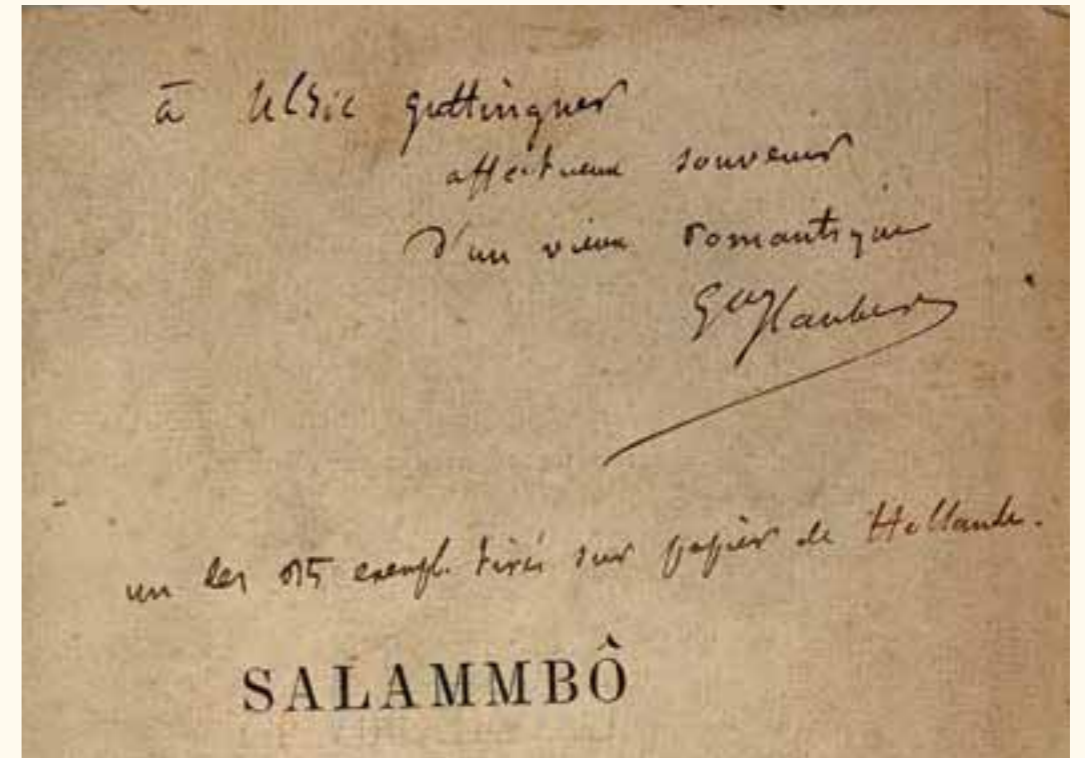 à Ulric Guttinguer
affectueux souvenir
d'un vieux romantique
Gve Flaubert
un des 25 exempl. tirés sur papier de Hollande.
SALAMMBÔ